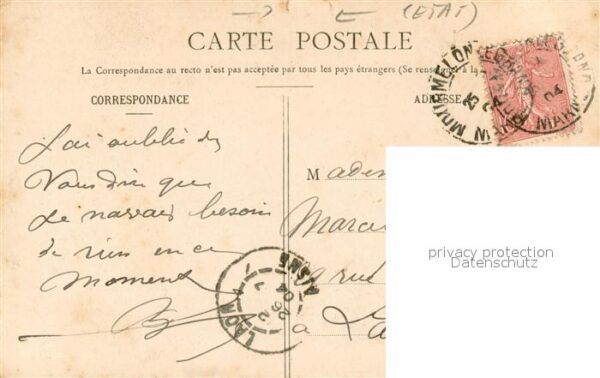 (ETAT)
CARTE POSTALE
La Correspondance au recto n'est pas acceptée par tous les pays étrangers (Se renseigner à la
CORRESPONDANCE
ADRESSE
J'ai oublié de
Vous dire que
Je n'avais besoin
de rien en ce
moment
Madem
Marcel
rue
a La
LAON AISNE
MOURMELON MARNE
privacy protection
Datenschutz